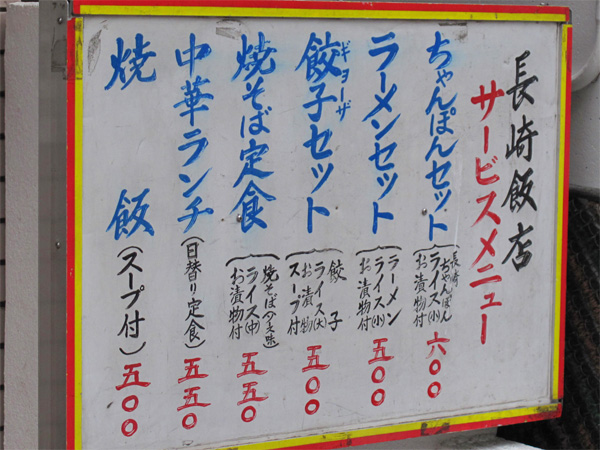 長崎飯店
サービスメニュー
ちゃんぽんセット
長崎ちゃんぽん
ライス(小)
お漬物付
六〇〇
ラーメンセット
ラーメン
ライス(小)
お漬物付
五〇〇
餃子セット
ギョーザ
餃子
ライス(大)
お漬物
スープ付
五〇〇
焼そば定食
ライス(中)
お漬物付
五五〇
中華ランチ
(日替り定食)
五五〇
焼飯
(スープ付)
五〇〇